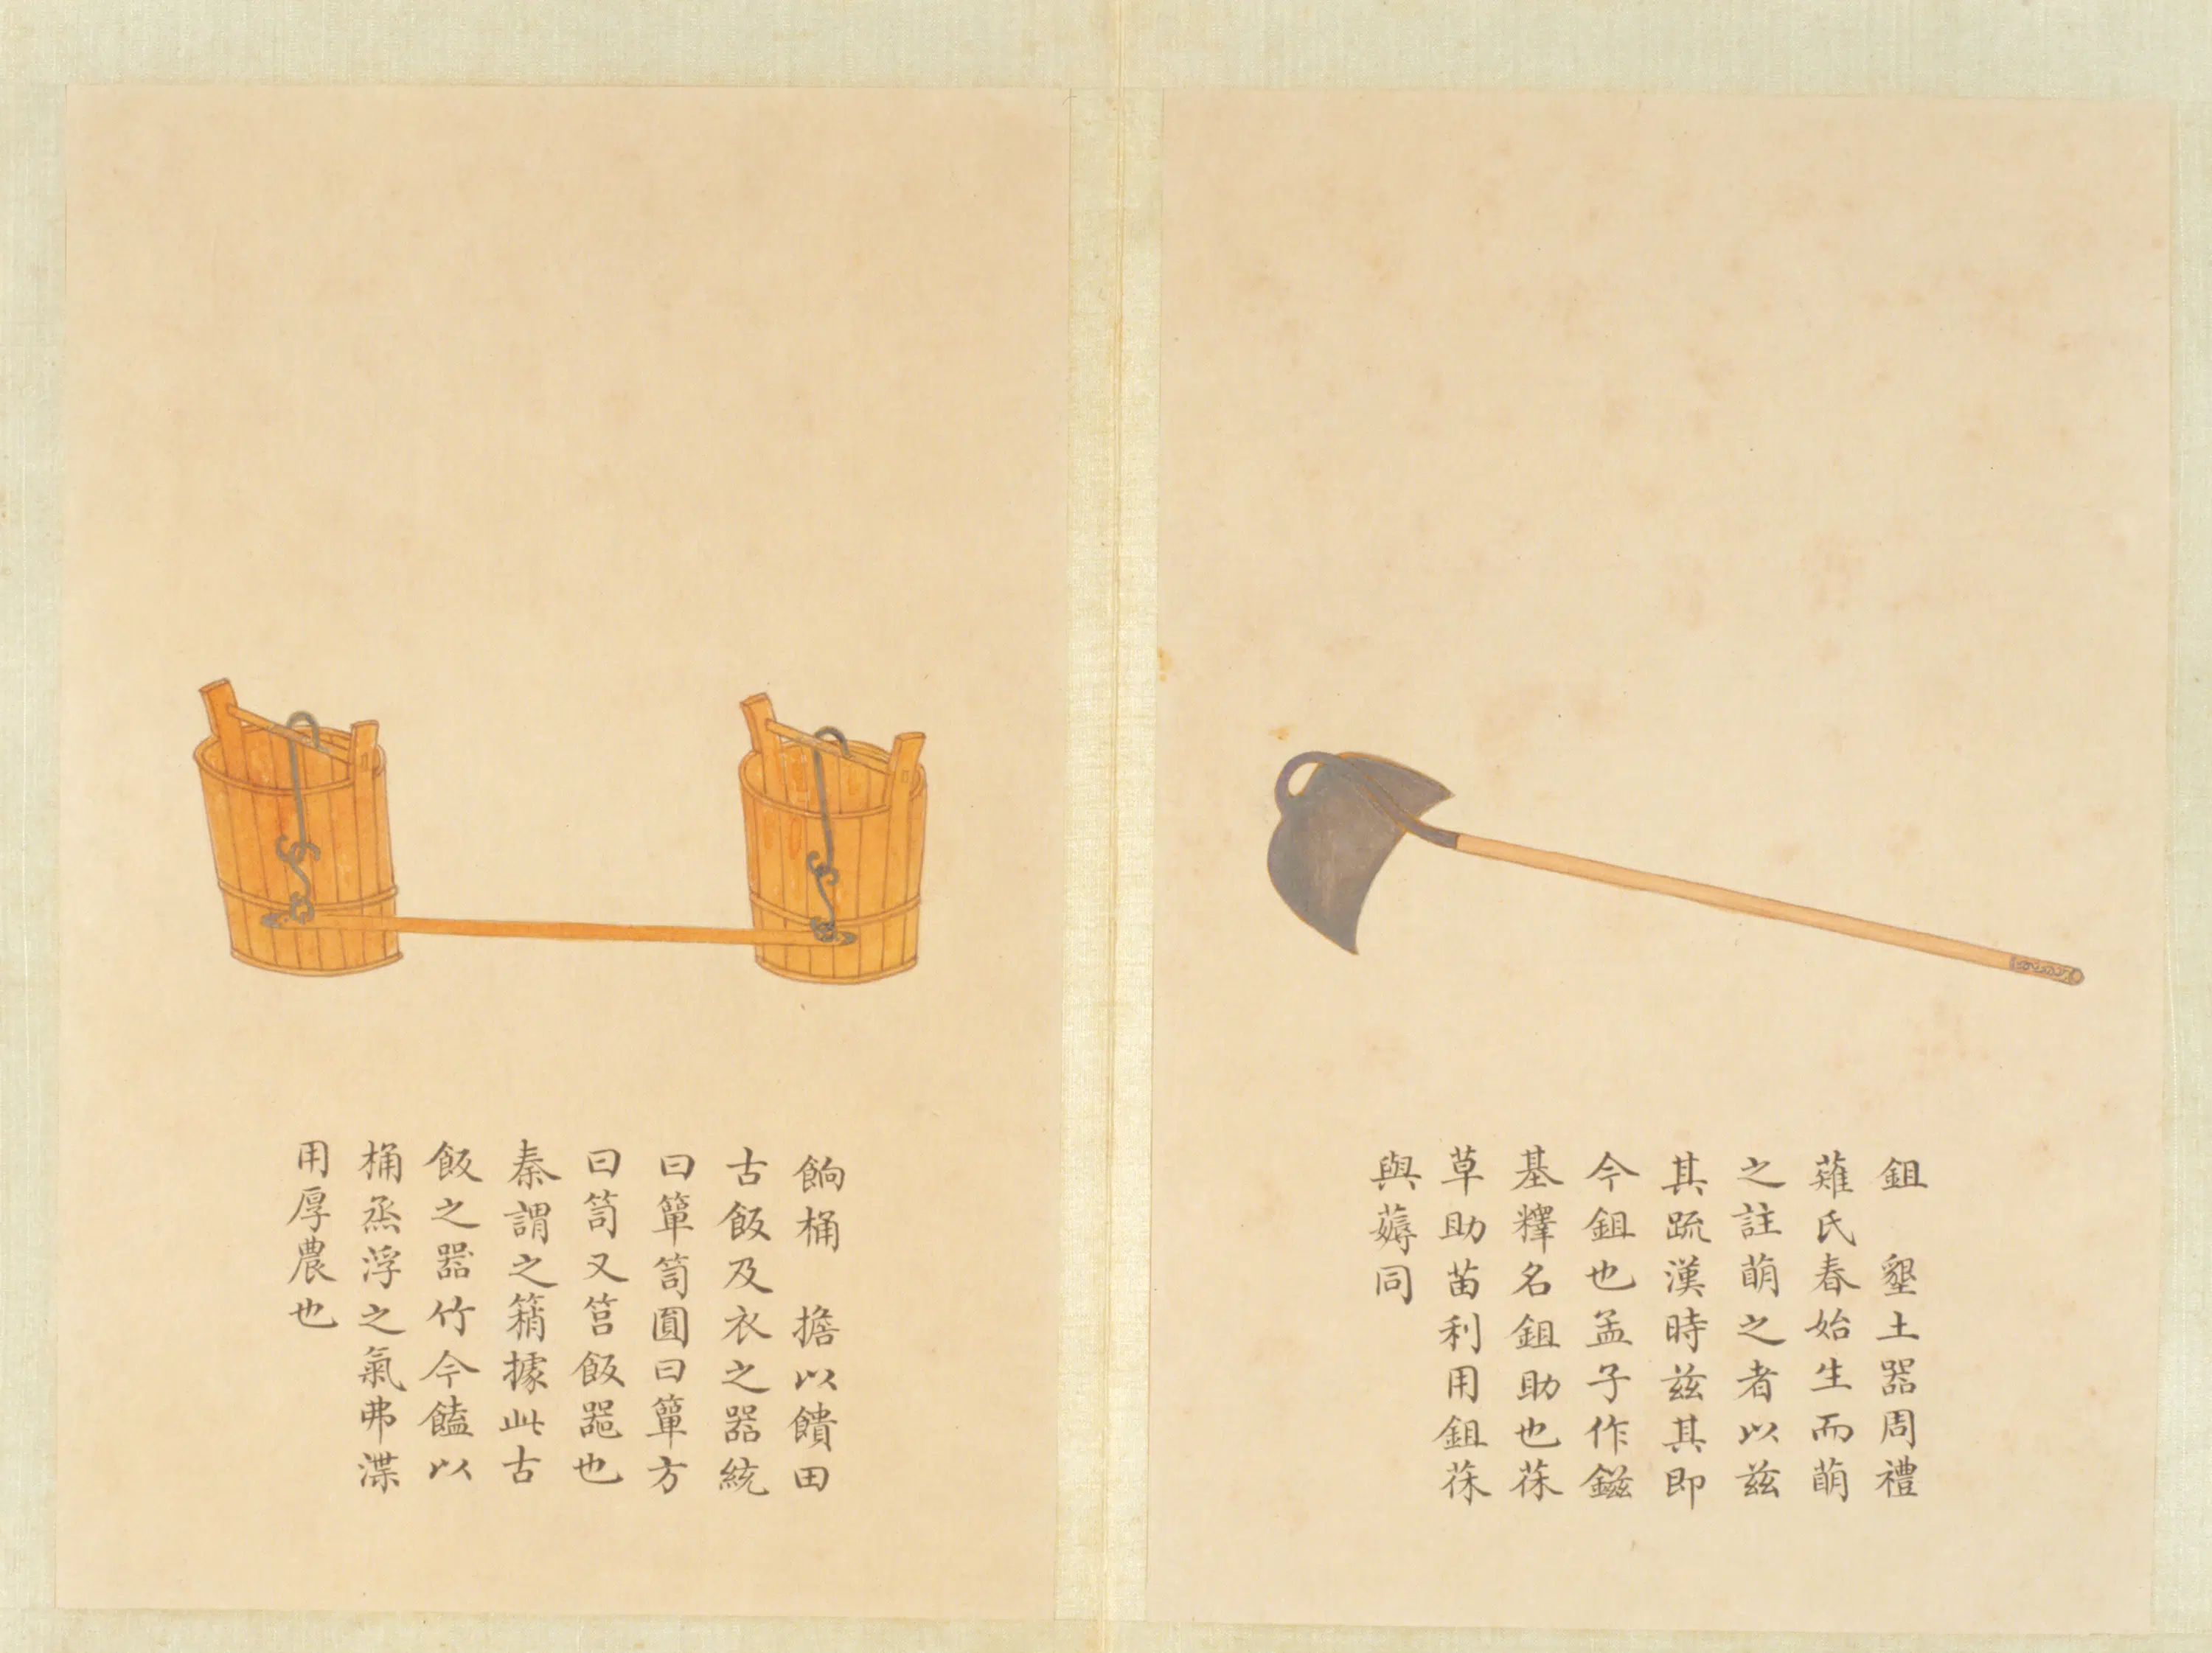 鉏　墾土器周禮
薙氏春始生而萌
之註萌之者以茲
其䟽漢時茲其即
今鉏也孟子作鎡
基釋名鉏助也蒣
草助苗利用鉏蒣
與薅同
餉桶　擔以饋田
古飯及衣之器統
曰簞笥圓曰簞方
曰笥又筥飯器也
秦謂之䈰據此古
飯之器竹今饁以
桶烝浮之氣弗渫
用厚農也